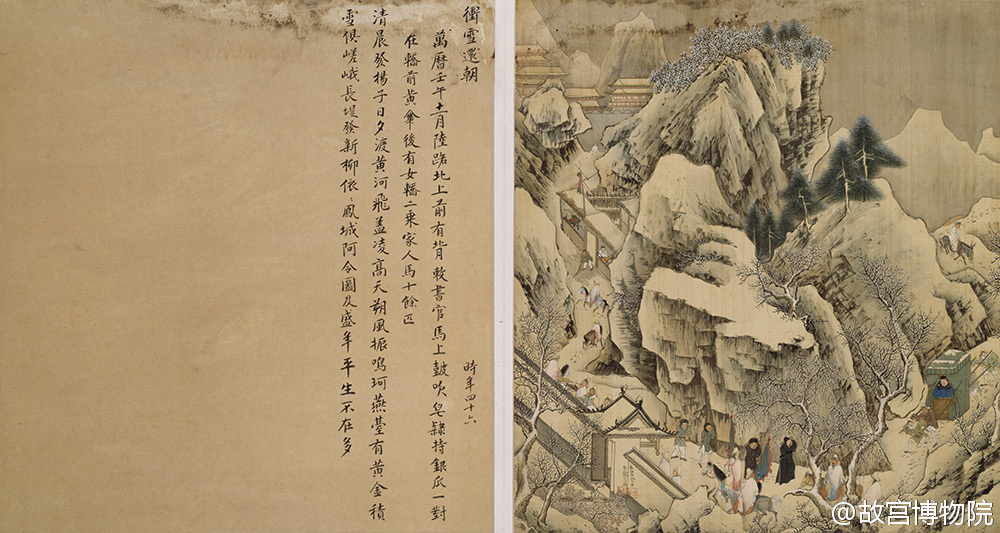 衝雪還朝
萬曆壬午十二月陸路北上前有背敕書官馬上鼓吹皂隸持銀瓜一對
在轎前黃傘後有女轎二乘家人馬十餘匹
時年四十六
清晨發楊子日夕渡黃河飛蓋凌高天朔風振鳴珂燕臺有黃金積
雪俱嵯峨長堤發新柳依〻鳳城阿令圖及盛年平生不在多
@故宫博物院